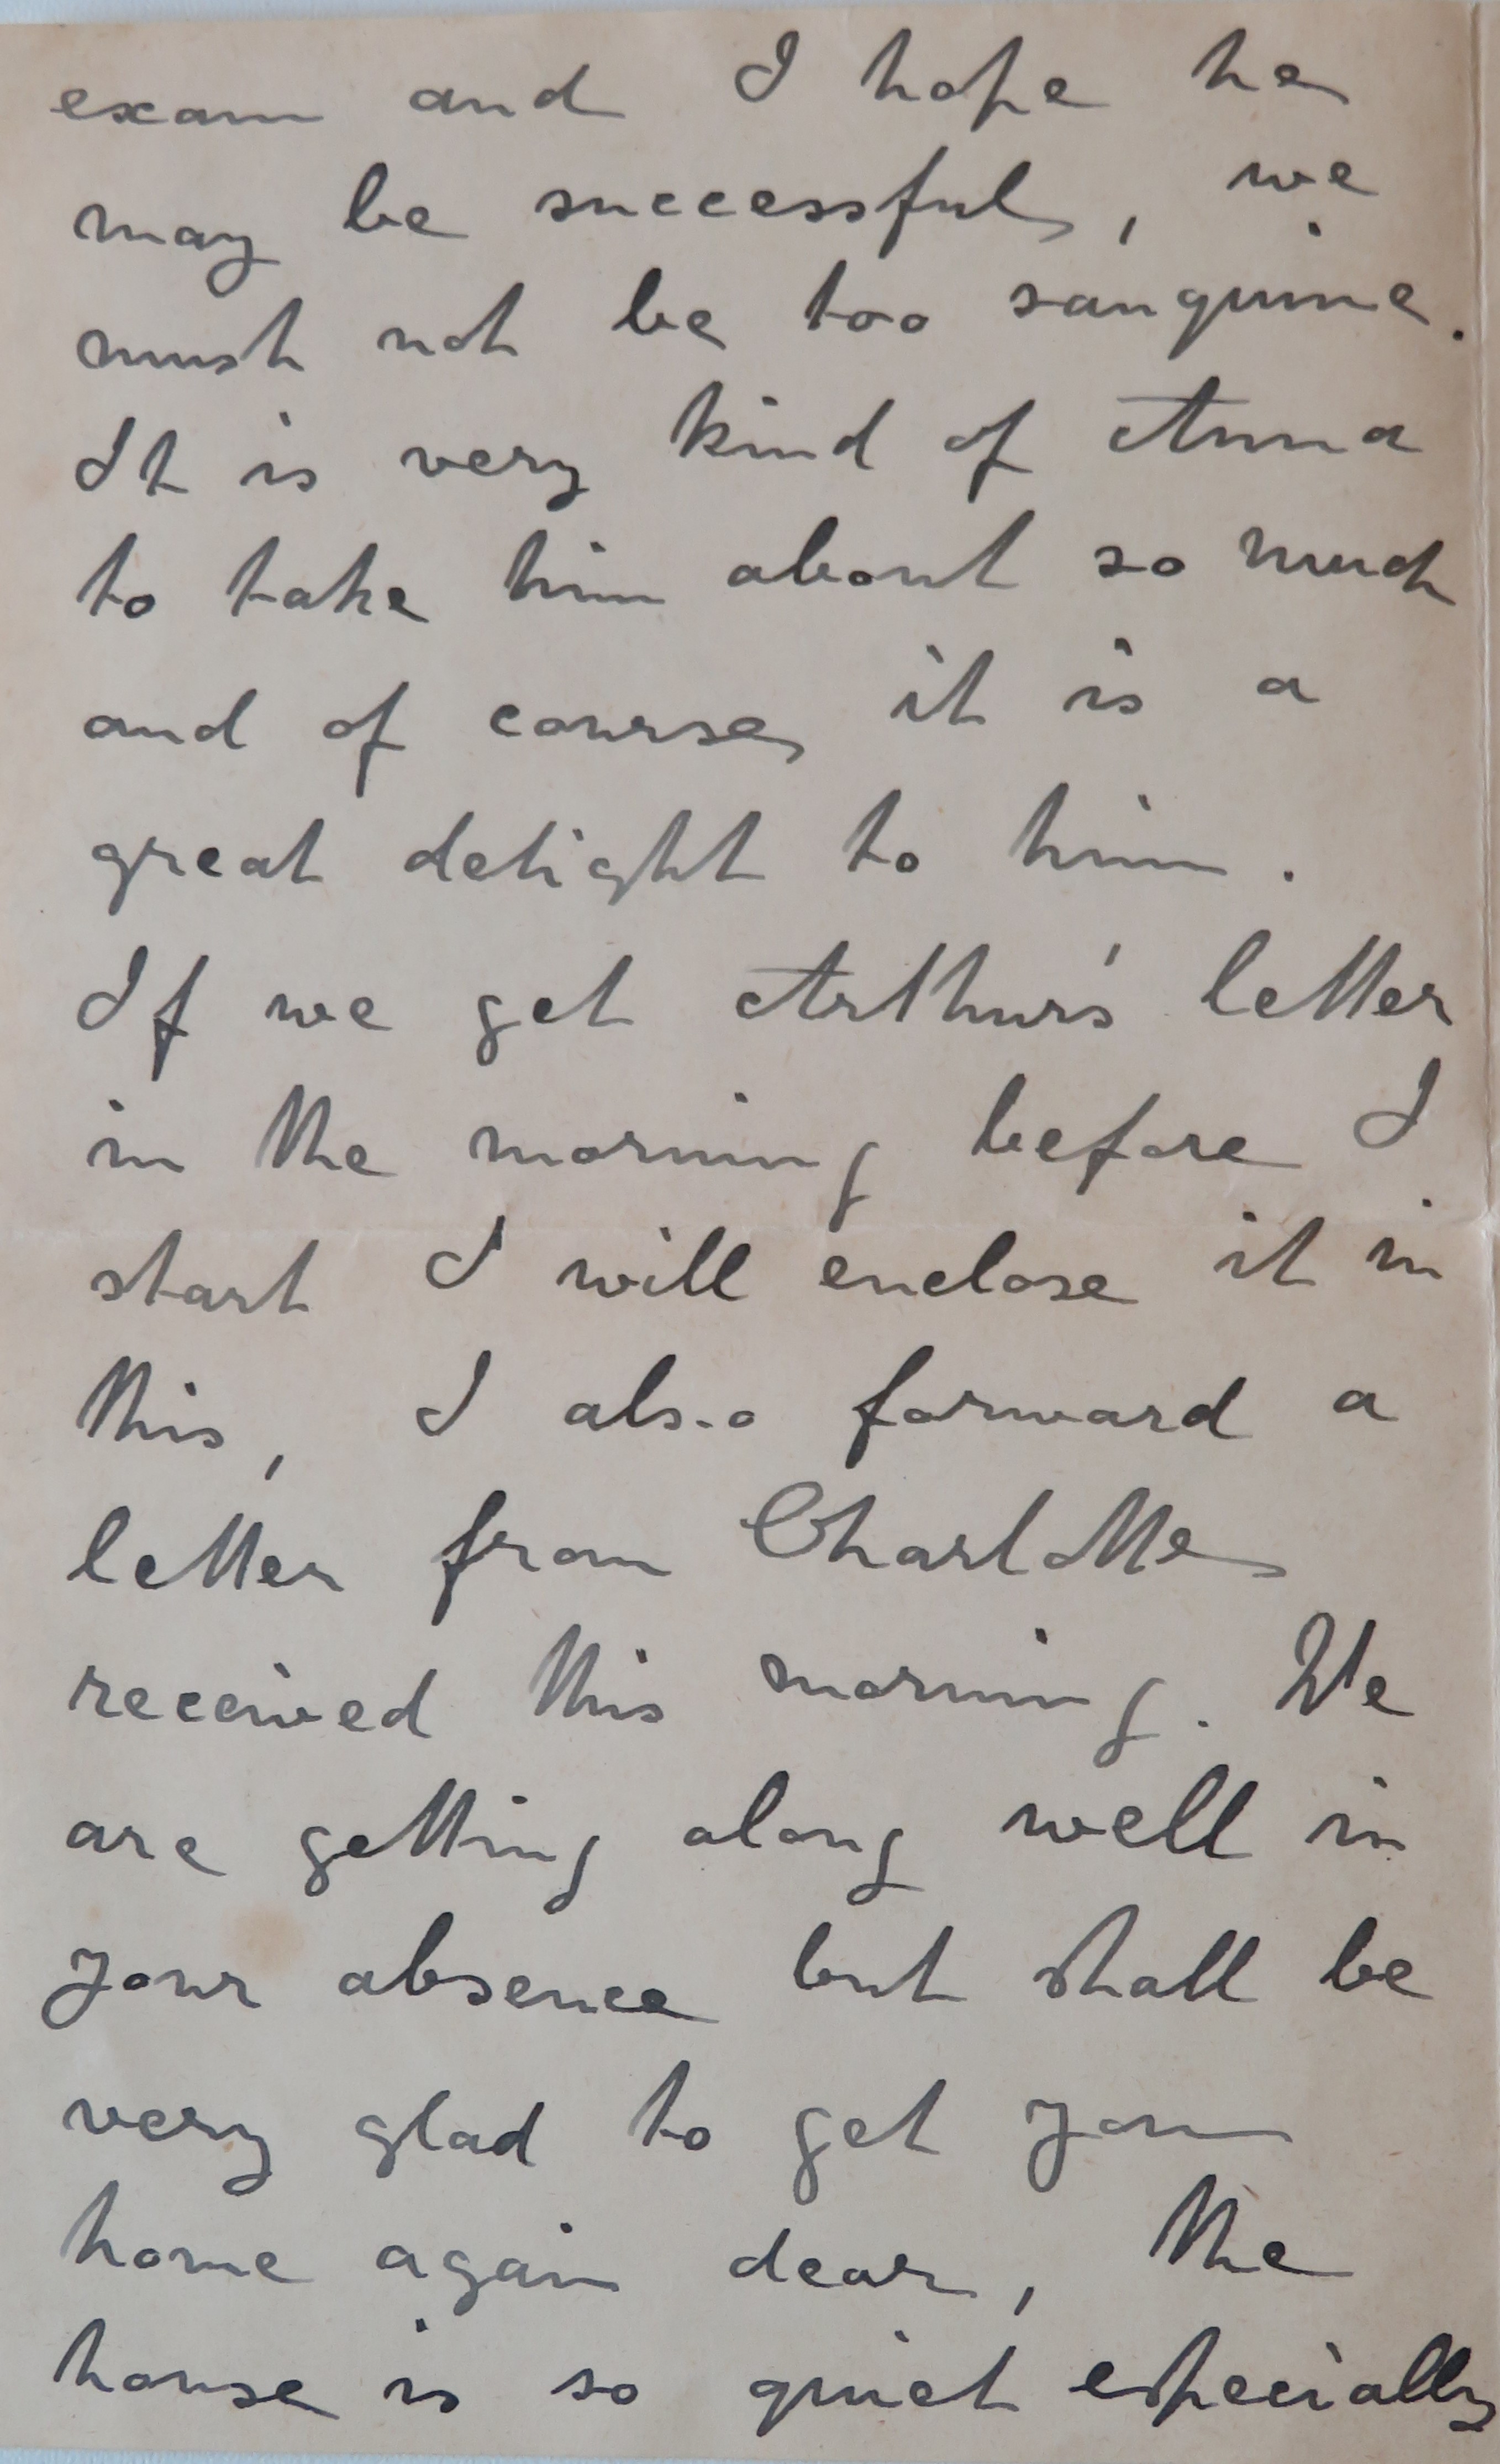 exam and I hope he
may be successful, we
must not be too sanguine.
It is very kind of Anna
to take him about so much
and of course it is a
great delight to him.
If we get Arthur's letter
in the morning before I
start I will enclose it in
this, I also forward a
letter from Charlotte
received this morning. We
are getting along well in
your absence but shall be
very glad to get you
home again dear, the
house is so quiet especially